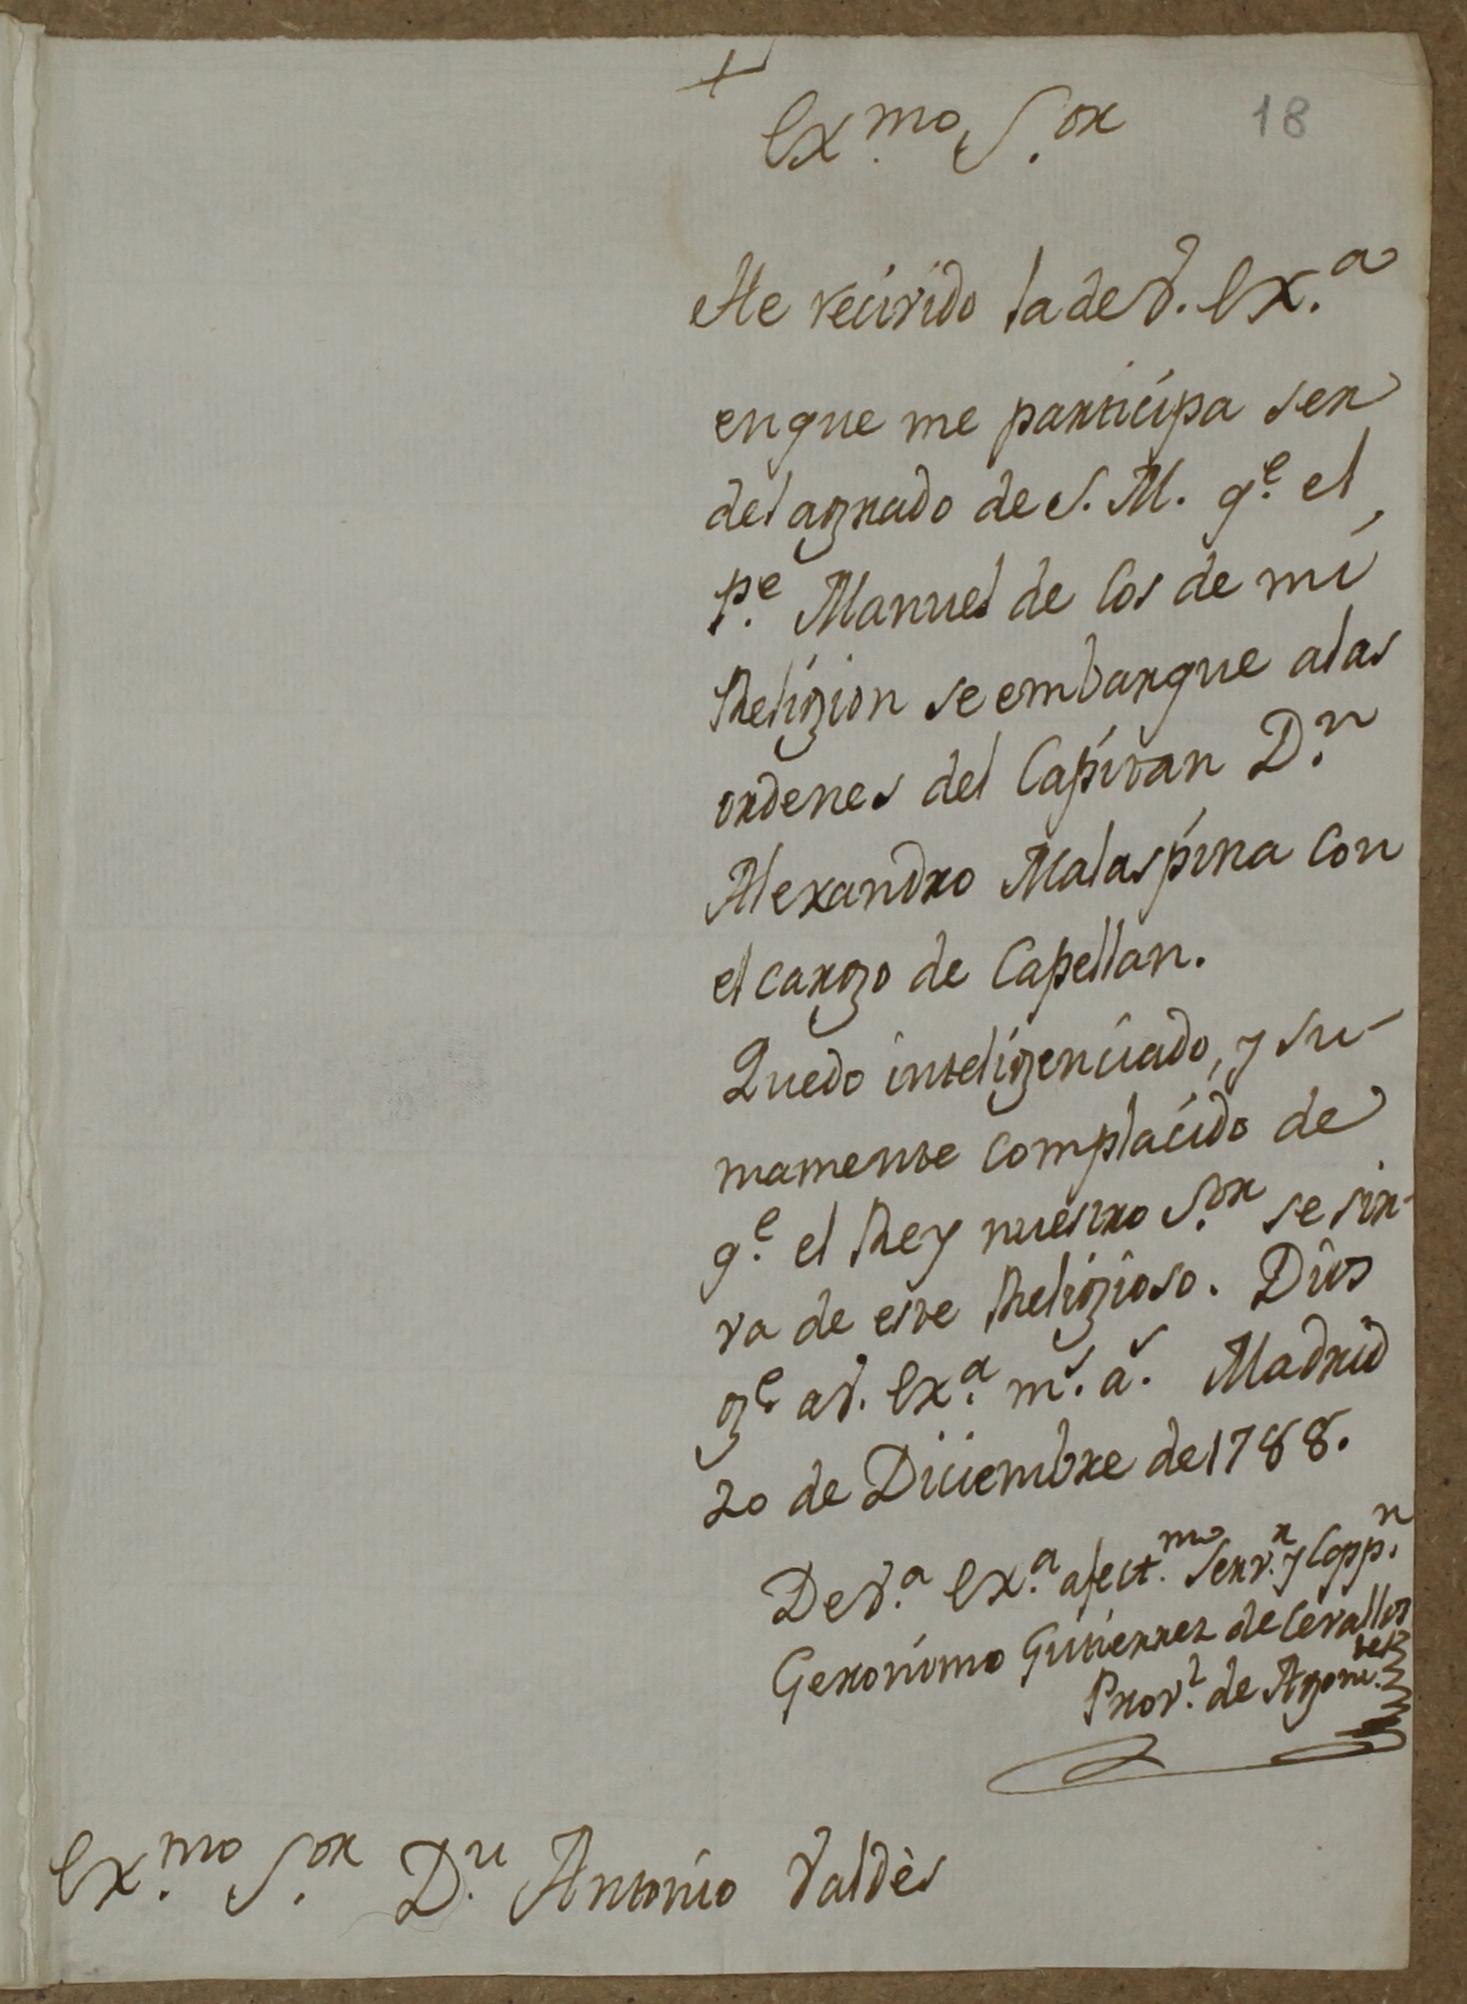 +
Ex.mo S.or
18
He recivido la de V. Ex.a
en que me participa ser
del agrado de S. M. q.e el
P.e Manuel de los de mi
Religion se embarque a las
ordenes del Capitan D.n
Alexandro Malaspina con
el cargo de Capellan.
Quedo inteligenciado, y su-
mamente complacido de
q.e el Rey nuestro S.or se sir-
va de este Religioso. Dios
g.e a V. Ex.a m.s a.s Madrid
20 de Diciembre de 1788.
De V.a Ex.a afect.mo Serv.r y Capp.n
Geronimo Gutierrez de Cevallos
Prov.l de Agoni.
Ex.mo S.or D.n Antonio Valdès